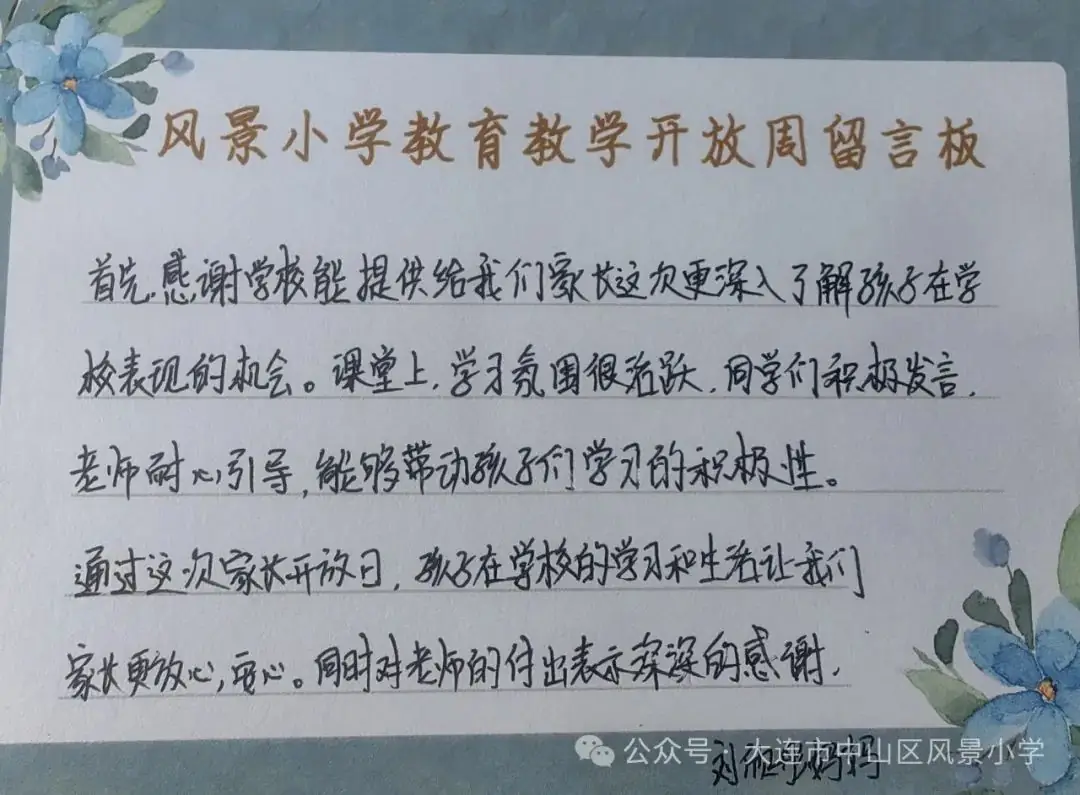 风景小学教育教学开放周留言板
首先,感谢学校能提供给我们家长这次更深入了解孩子在学
校表现的机会。课堂上,学习氛围很活跃,同学们积极发言,
老师耐心引导,能够带动孩子们学习的积极性。
通过这次家长开放日,孩子在学校的学习和生活让我们
家长更放心,安心。同时对老师的付出表示深深的感谢,
公众号·大连市中山区风景小学
刘 妈妈